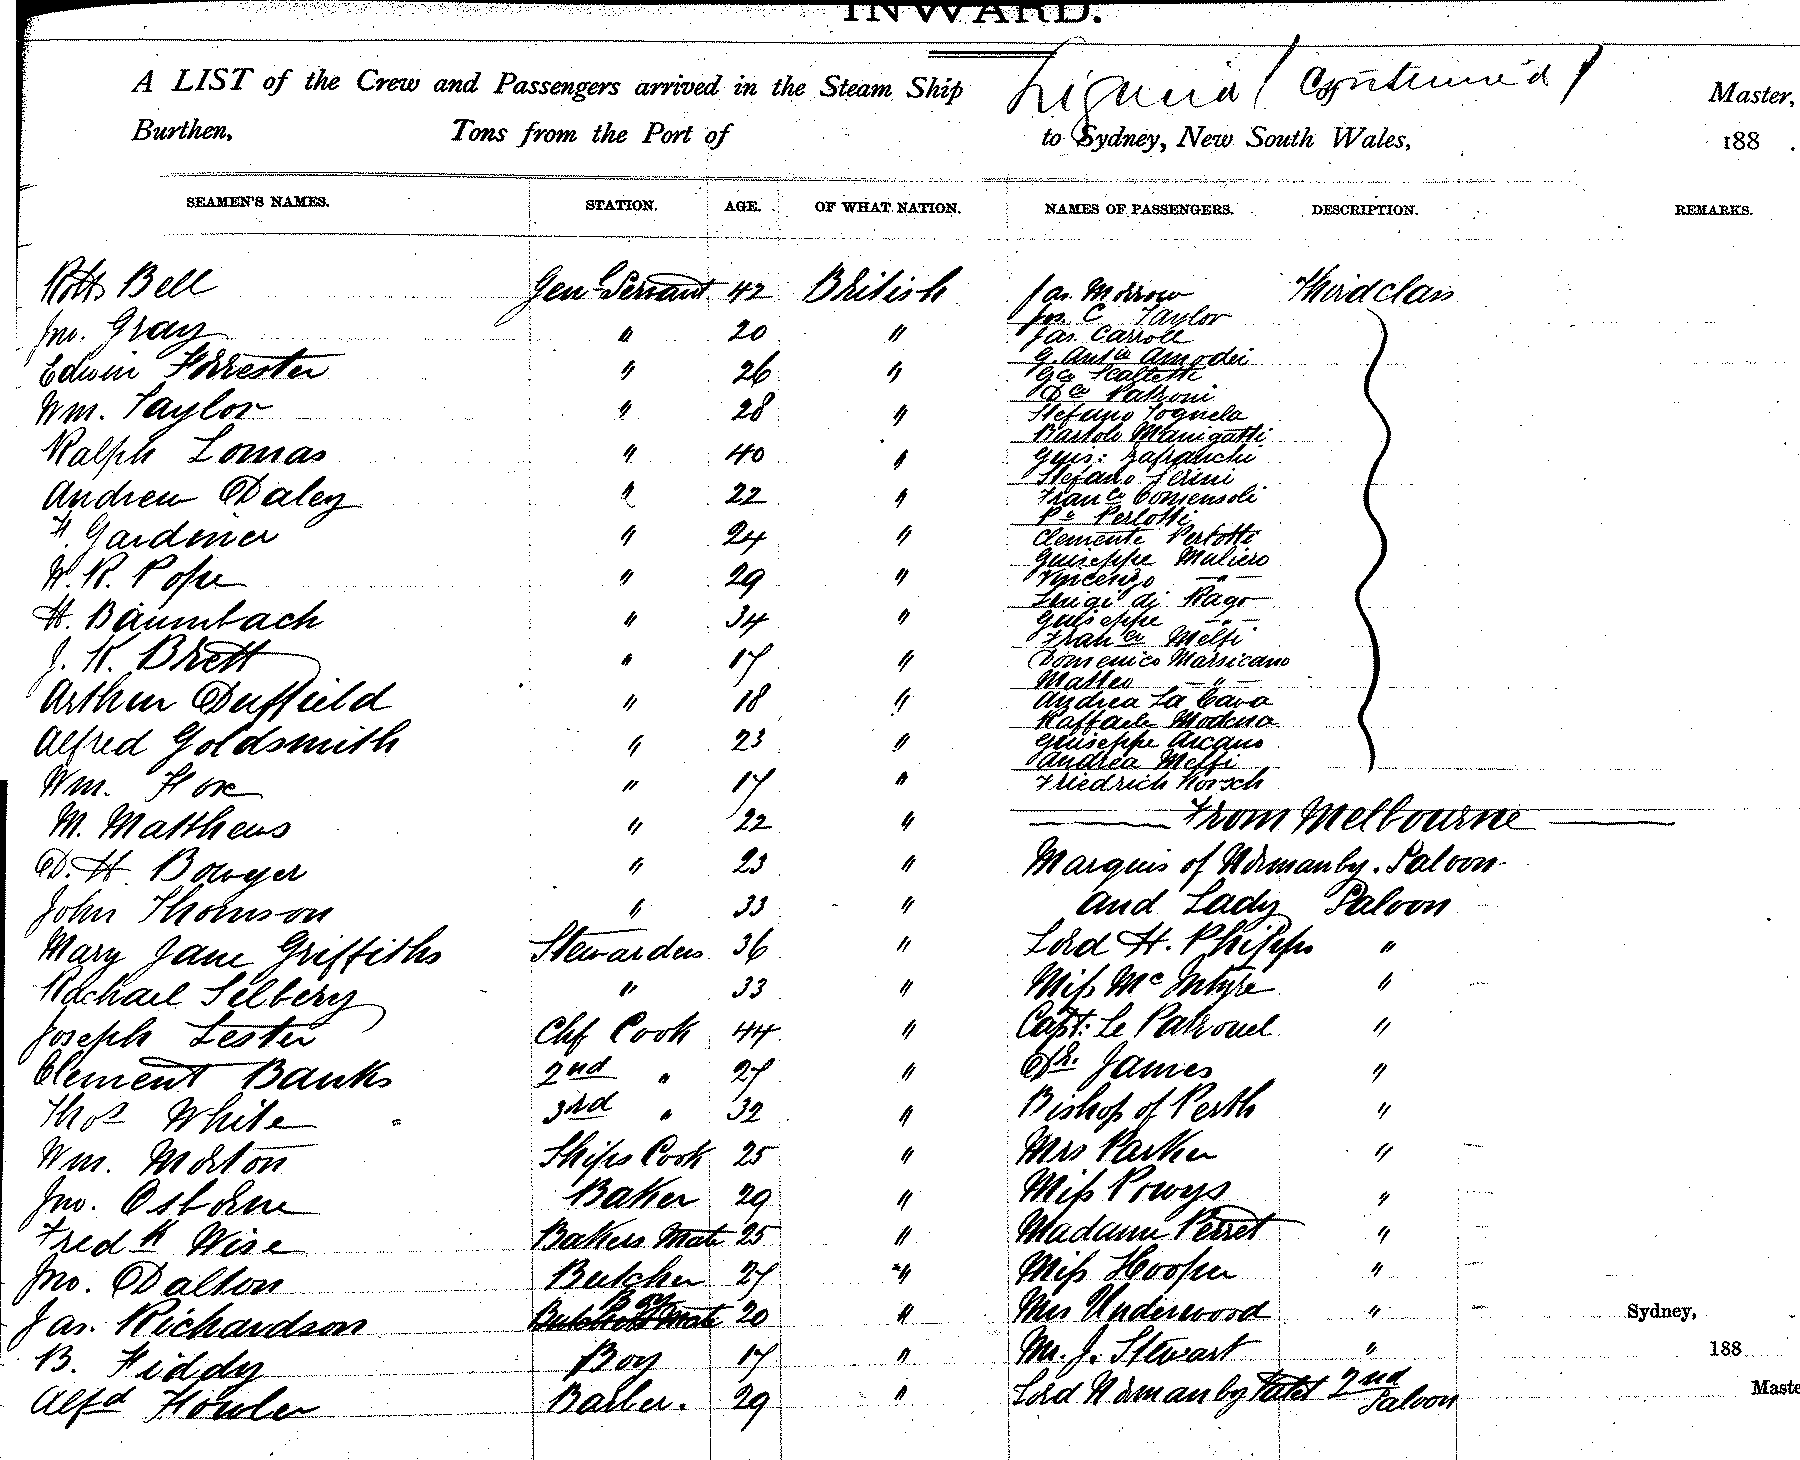 INWARD.
A LIST of the Crew and Passengers arrived in the Steam Ship Liguria (Continued) Master,
Burthen, Tons from the Port of to Sydney, New South Wales, 188 .
SEAMEN'S NAMES. STATION. AGE. OF WHAT NATION. NAMES OF PASSENGERS. DESCRIPTION. REMARKS.
Robt Bell Gen Servant 42 British
Jno. Gray " 20 "
Edwin Forrester " 26 "
Wm. Taylor " 28 "
Ralph Lomas " 40 "
Andrew Daley " 22 "
F. Gardiner " 24 "
W. R. Pope " 29 "
H. Baumbach " 34 "
J. K. Brett " 17 "
Arthur Duffield " 18 "
Alfred Goldsmith " 23 "
Wm. Fox " 17 "
M. Matthews " 22 "
D. H. Bowyer " 23 "
John Thomson " 33 "
Mary Jane Griffiths Stewardess 36 "
Rachael Silbery " 33 "
Joseph Lester Chf Cook 44 "
Clement Banks 2nd " 27 "
Thos White 3rd " 32 "
Wm. Morton Ships Cook 25 "
Jno. Osborne Baker 29 "
Fredk Wise Bakers Mate 25 "
Jno. Dalton Butcher 27 "
Jas. Richardson Boy 20 "
B. Fiddy Boy 17 "
Alfd Fowler Barber. 29 "
Jas. Morrow Third class
Jos. C Taylor
Jas. Carroll
G. Antio Amodei
Gco Scaltetti
Dco Patroni
Stefano Tognela
Bartolo Manigatti
Guis: Zafranchi
Stefano Serini
Franco Comensoli
Po Perlotti
Clemente Perlotti
Guiseppe Muliero
Vincenzo — " —
Luigi di Rago
Guiseppe — " —
Franco Melfi
Domenico Marsicano
Matteo — " —
Andrea La Cava
Raffaele Modena
Guiseppe Arcano
Andrea Melfi
Friedrich Korsch
From Melbourne
Marquis of Normanby. Saloon
and Lady Saloon
Lord H. Phipps "
Miss McIntyre "
Capt: Le Patrouel "
Dr. James "
Bishop of Perth "
Mrs Parker "
Miss Powys "
Madame Perret "
Miss Hooper "
Mrs Underwood " Sydney,
Mr. J. Stewart " 188
Lord Normanby Valet 2nd Saloon Maste